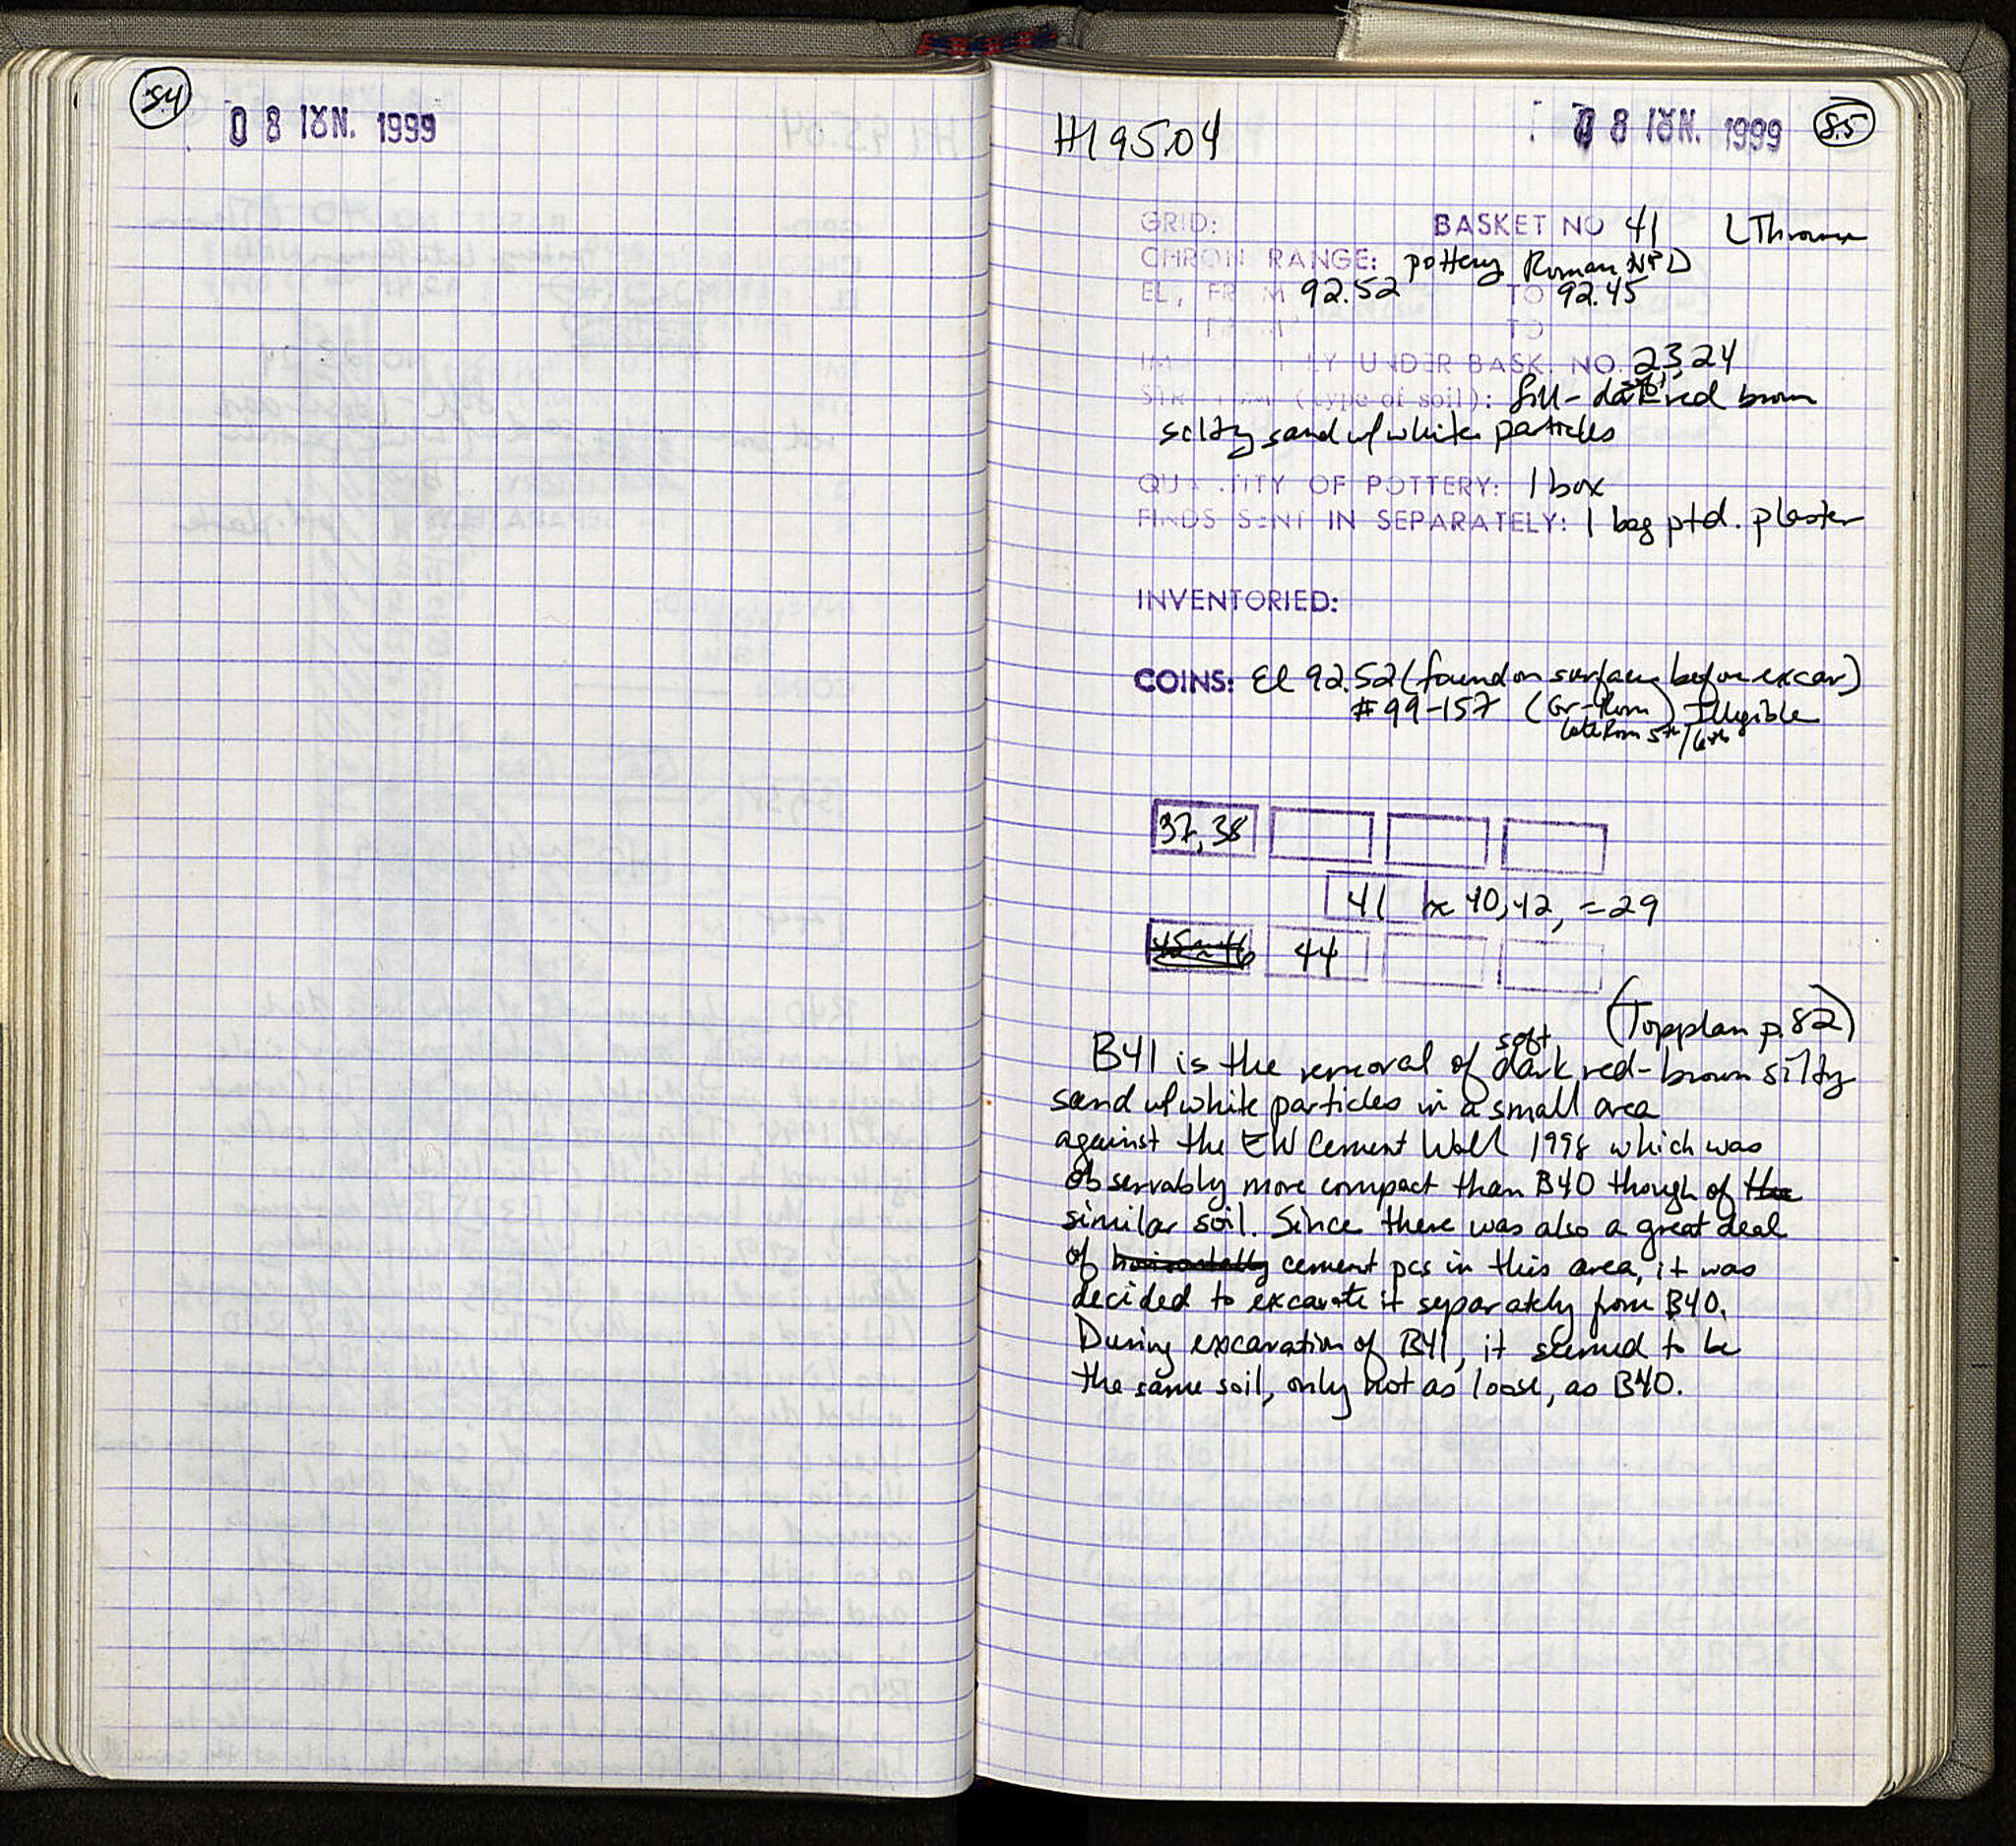 84
08 ΙΟΥΝ. 1999
HI 95.04
08 ΙΟΥΝ. 1999
85
GRID: BASKET NO 41
CHRON RANGE: pottery Roman NPD
EL, FROM 92.52 TO 92.45
TO
UNDER BASK. NO. 23,24
(type of soil): fill - soft dark red brown
silty sand w/ white particles
QUANTITY OF POTTERY: 1 box
FINDS SENT IN SEPARATELY: 1 bag ptd. plaster
INVENTORIED:
COINS: El 92.52 (found on surface before excav)
#99-157 (Gr-Rom) Illegible
late Rom 5th/6th
37, 38
41 ≈ 40, 42, = 29
45 ≈ 46 44
(Topplan p. 82)
B41 is the removal of soft dark red-brown silty
sand w/ white particles in a small area
against the EW Cement Wall 1998 which was
observably more compact than B40 though of the
similar soil. Since there was also a great deal
of horizontally cement pcs in this area, it was
decided to excavate it separately from B40.
During excavation of B41, it seemed to be
the same soil, only not as loose, as B40.